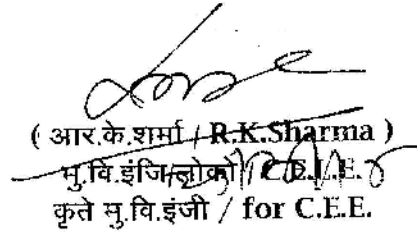 ( आर.के.शर्मा / R.K.Sharma )
मु.वि.इंजि/लोको / C.E.L.E.
कृते मु.वि.इंजी / for C.E.E.